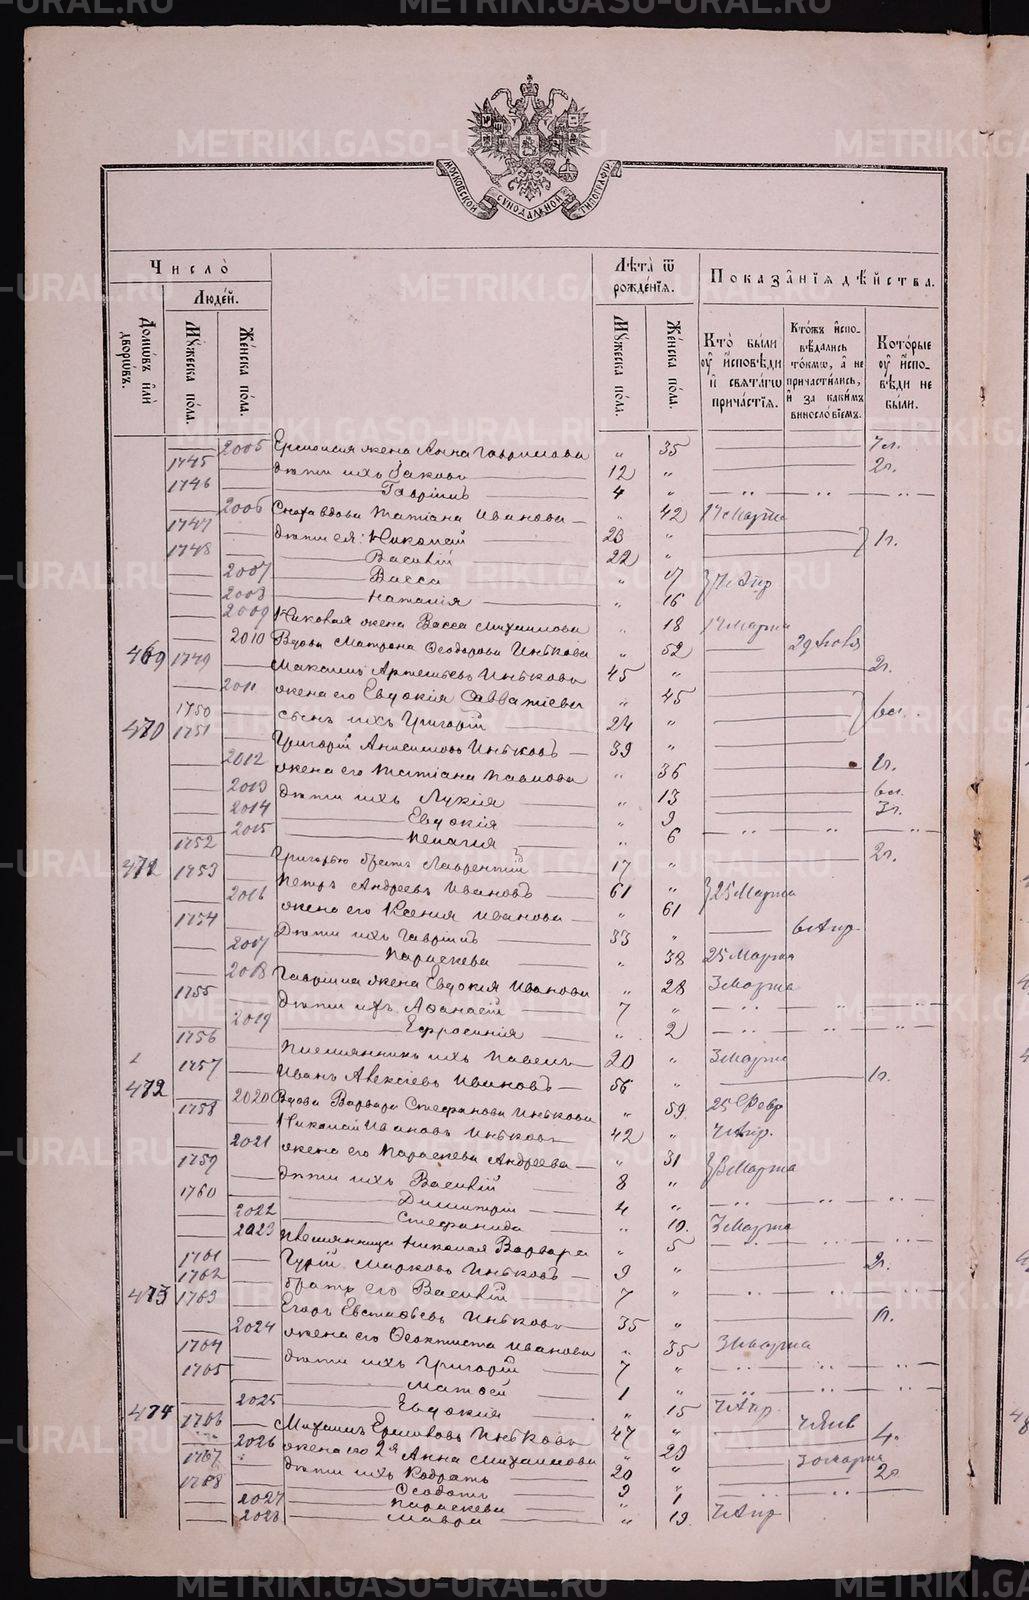 МОСКОВСКОЙ СѴНОДАЛЬНОЙ ТИПОГРАФІИ
Число̀
Людей.
Домѡвъ и҆лѝ дворѡвъ.
Мꙋжеска по́ла.
Же́нска по́ла.
Лѣта̀ ѿ рожде́нїѧ.
Мꙋжеска по́ла.
Же́нска по́ла.
Показа̑нїѧ дѣ́йства.
Кто̀ были ᲂу҆ и҆́сповѣди и҆ свѧта́гѡ прича́стїѧ.
Кто́жъ и҆спо-вѣдались то́кмѡ, а҆ не причасти́лись, и҆ за каки́мъ винословїемъ.
Кото́рые ᲂу҆ и҆спо-вѣди не бы́ли.
2005 жена Анна Гаврилова " 35
1745 дѣти ихъ Iаковъ 12 " 2 г.
1746 Гавріилъ 4 "
2006 Сноха вдова Татіана Иванова " 42 17 Марта
1747 дѣти ея: Николай 23 " 1 г.
1748 Василій 22 "
2007 Васса " 17 7 Апр
2008 Наталія " 16
2009 жена Васса Михаилова " 18 17 Марта
2010 Вдова Матрона Ѳеодорова Инькова " 52
469 1749 Максимъ Артемьевъ Иньковъ 45 " 2 г.
2011 жена его Евдокія Савватіева " 45
1750 сынъ ихъ Григорій 24 "
470 1751 Григорій Анисимовъ Иньковъ 39 "
2012 жена его Татіана Павлова " 36
2013 дѣти ихъ Лукія " 13
2014 Евдокія " 9 3 г.
2015 Пелагія " 6
1752 Григорью братъ Лаврентій 17 " 2 г.
471 1753 Петръ Андреевъ Ивановъ 61 " 25 Марта
2016 жена его Ксенія Иванова " 61
1754 Дѣти ихъ Гавріилъ 33 " 6 Апр
2017 Параскева " 38 25 Марта
2018 Гавріила жена Евдокія Иванова " 28 3 Марта
1755 дѣти ихъ Аѳанасій 7 "
2019 Евфросинія " 2
1756 Племянникъ ихъ Павелъ 20 " 3 Марта
1757 Иванъ Алексѣевъ Ивановъ 56 " 1 г.
472 2020 Вдова Варвара Стефанова Инькова " 59 25 Февр
1758 Николай Ивановъ Иньковъ 42 " 7 Апр.
2021 жена его Параскева Андреева " 31 3 Марта
1759 дѣти ихъ Василій 8 "
1760 Димитрій 4 "
2022 Стефанида " 10 3 Марта
2023 племянница Николая Варвара " 5
1761 Гурій Марковъ Иньковъ 9 " 2 г.
1762 братъ его Василій 7 "
473 1763 Егоръ Евстаѳьевъ Иньковъ 35 "
2024 жена его Ѳеоктиста Иванова " 35 3 Марта
1764 дѣти ихъ Григорій 7 "
1765 Матѳей 1 "
2025 Евдокія " 15 7 Апр.
474 1766 Михаилъ Ермиловъ Иньковъ 47 "
2026 жена его 2я Анна Михаилова " 29
1767 дѣти ихъ Кодратъ 20 " 2 г.
1768 Ѳеодотъ 9 "
2027 Параскева " 1
2028 Мавра " 19 7 Апр
METRIKI.GASO-URAL.RU